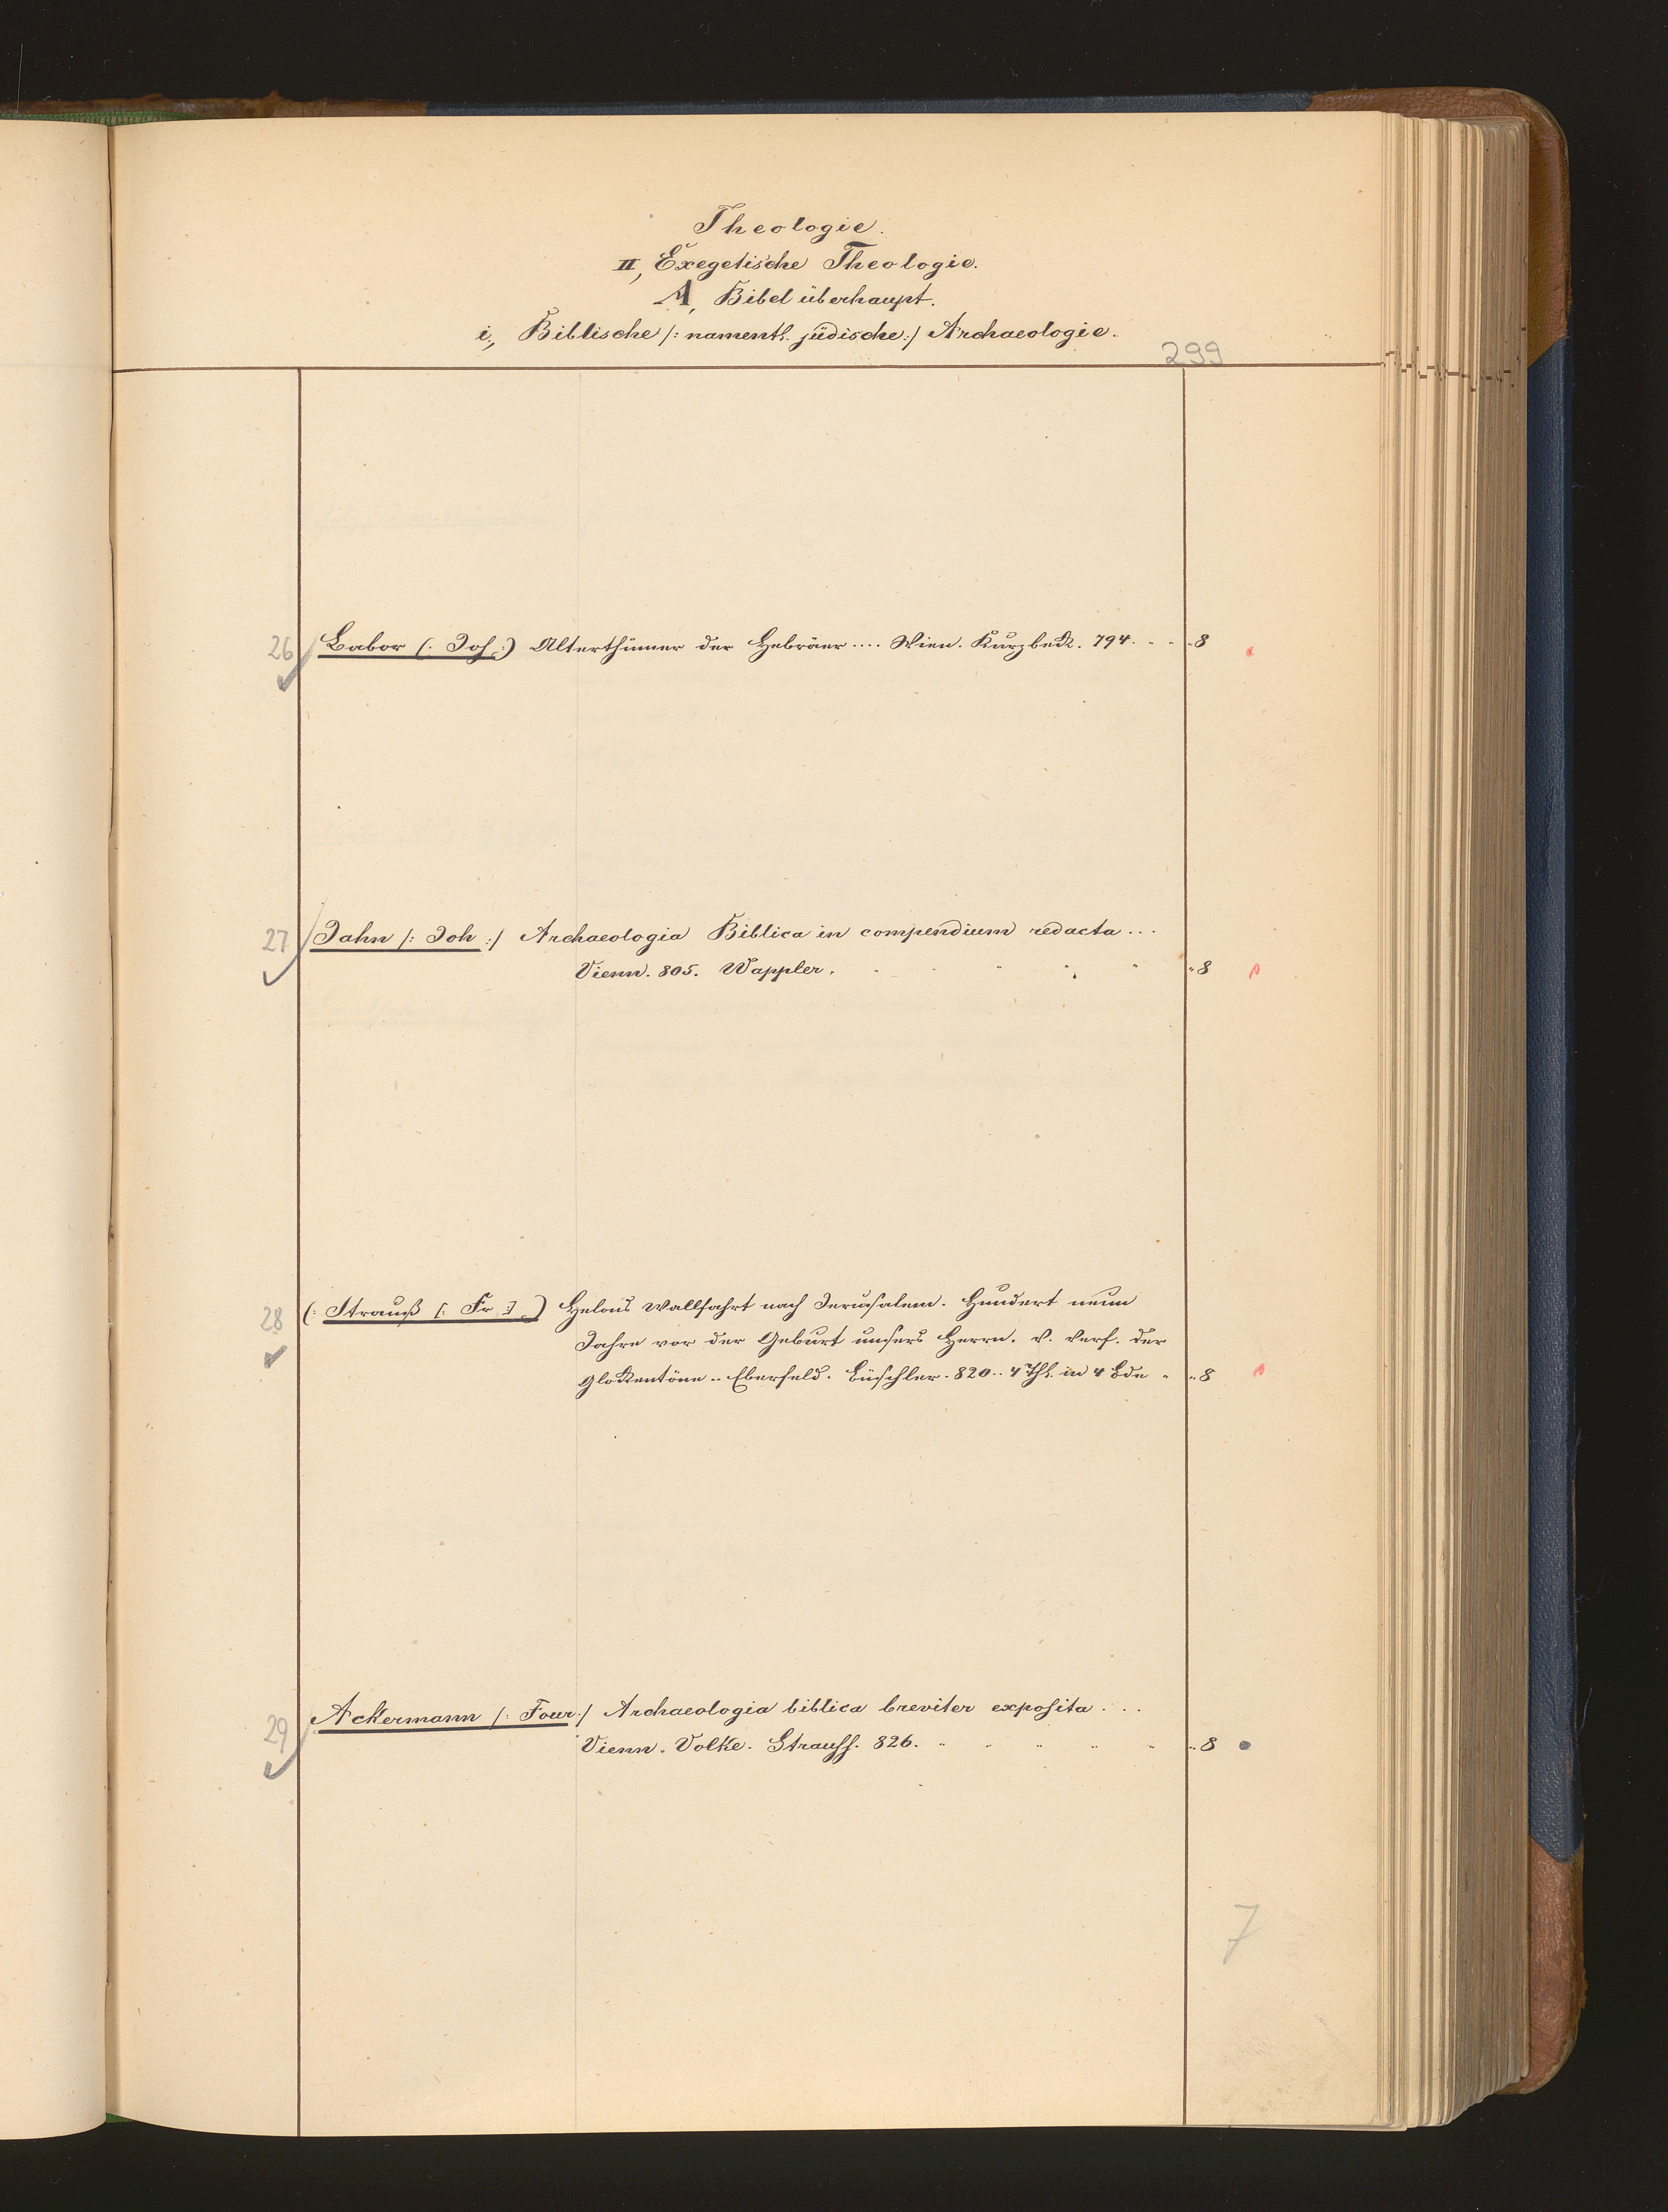 Theologie.
II, Exegetische Theologie.
A, Bibel überhaupt.
i., Biblische /: namentl. jüdische :/ Archaeologie.
299
26 Babor (: Joh :) Alterthümer der Hebräer .... Wien. Kurzbeck. 794. . . . 8
27 Jahn /: Joh :/ Archaeologia Biblica in compendium redacta ...
Vienn. 805. Wappler. . . . . . 8
28 (: Strauß [: Fr :] :) Helons Wallfahrt nach Jerusalem. Hundert neun
Jahre vor der Geburt unsers Herrn. v. Verf. der
Glockentöne .. Elberfeld. Büschler. 820 .. 4 Thl. in 4 Bde . . 8
29 Ackermann /: Four :/ Archaeologia biblica breviter exposita ...
Vienn. Volke. Strauss. 826. . . . . . 8
7